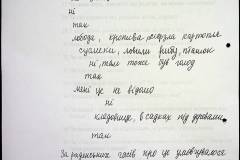 ні
так
лобода, кропива, мерзла картопля
суслики, ловили рибу, пташок
ні, там тоже був голод
так
мені це не відомо
ні
кладовище, в садках під деревами
так
За радянських часів про це умовчувалося